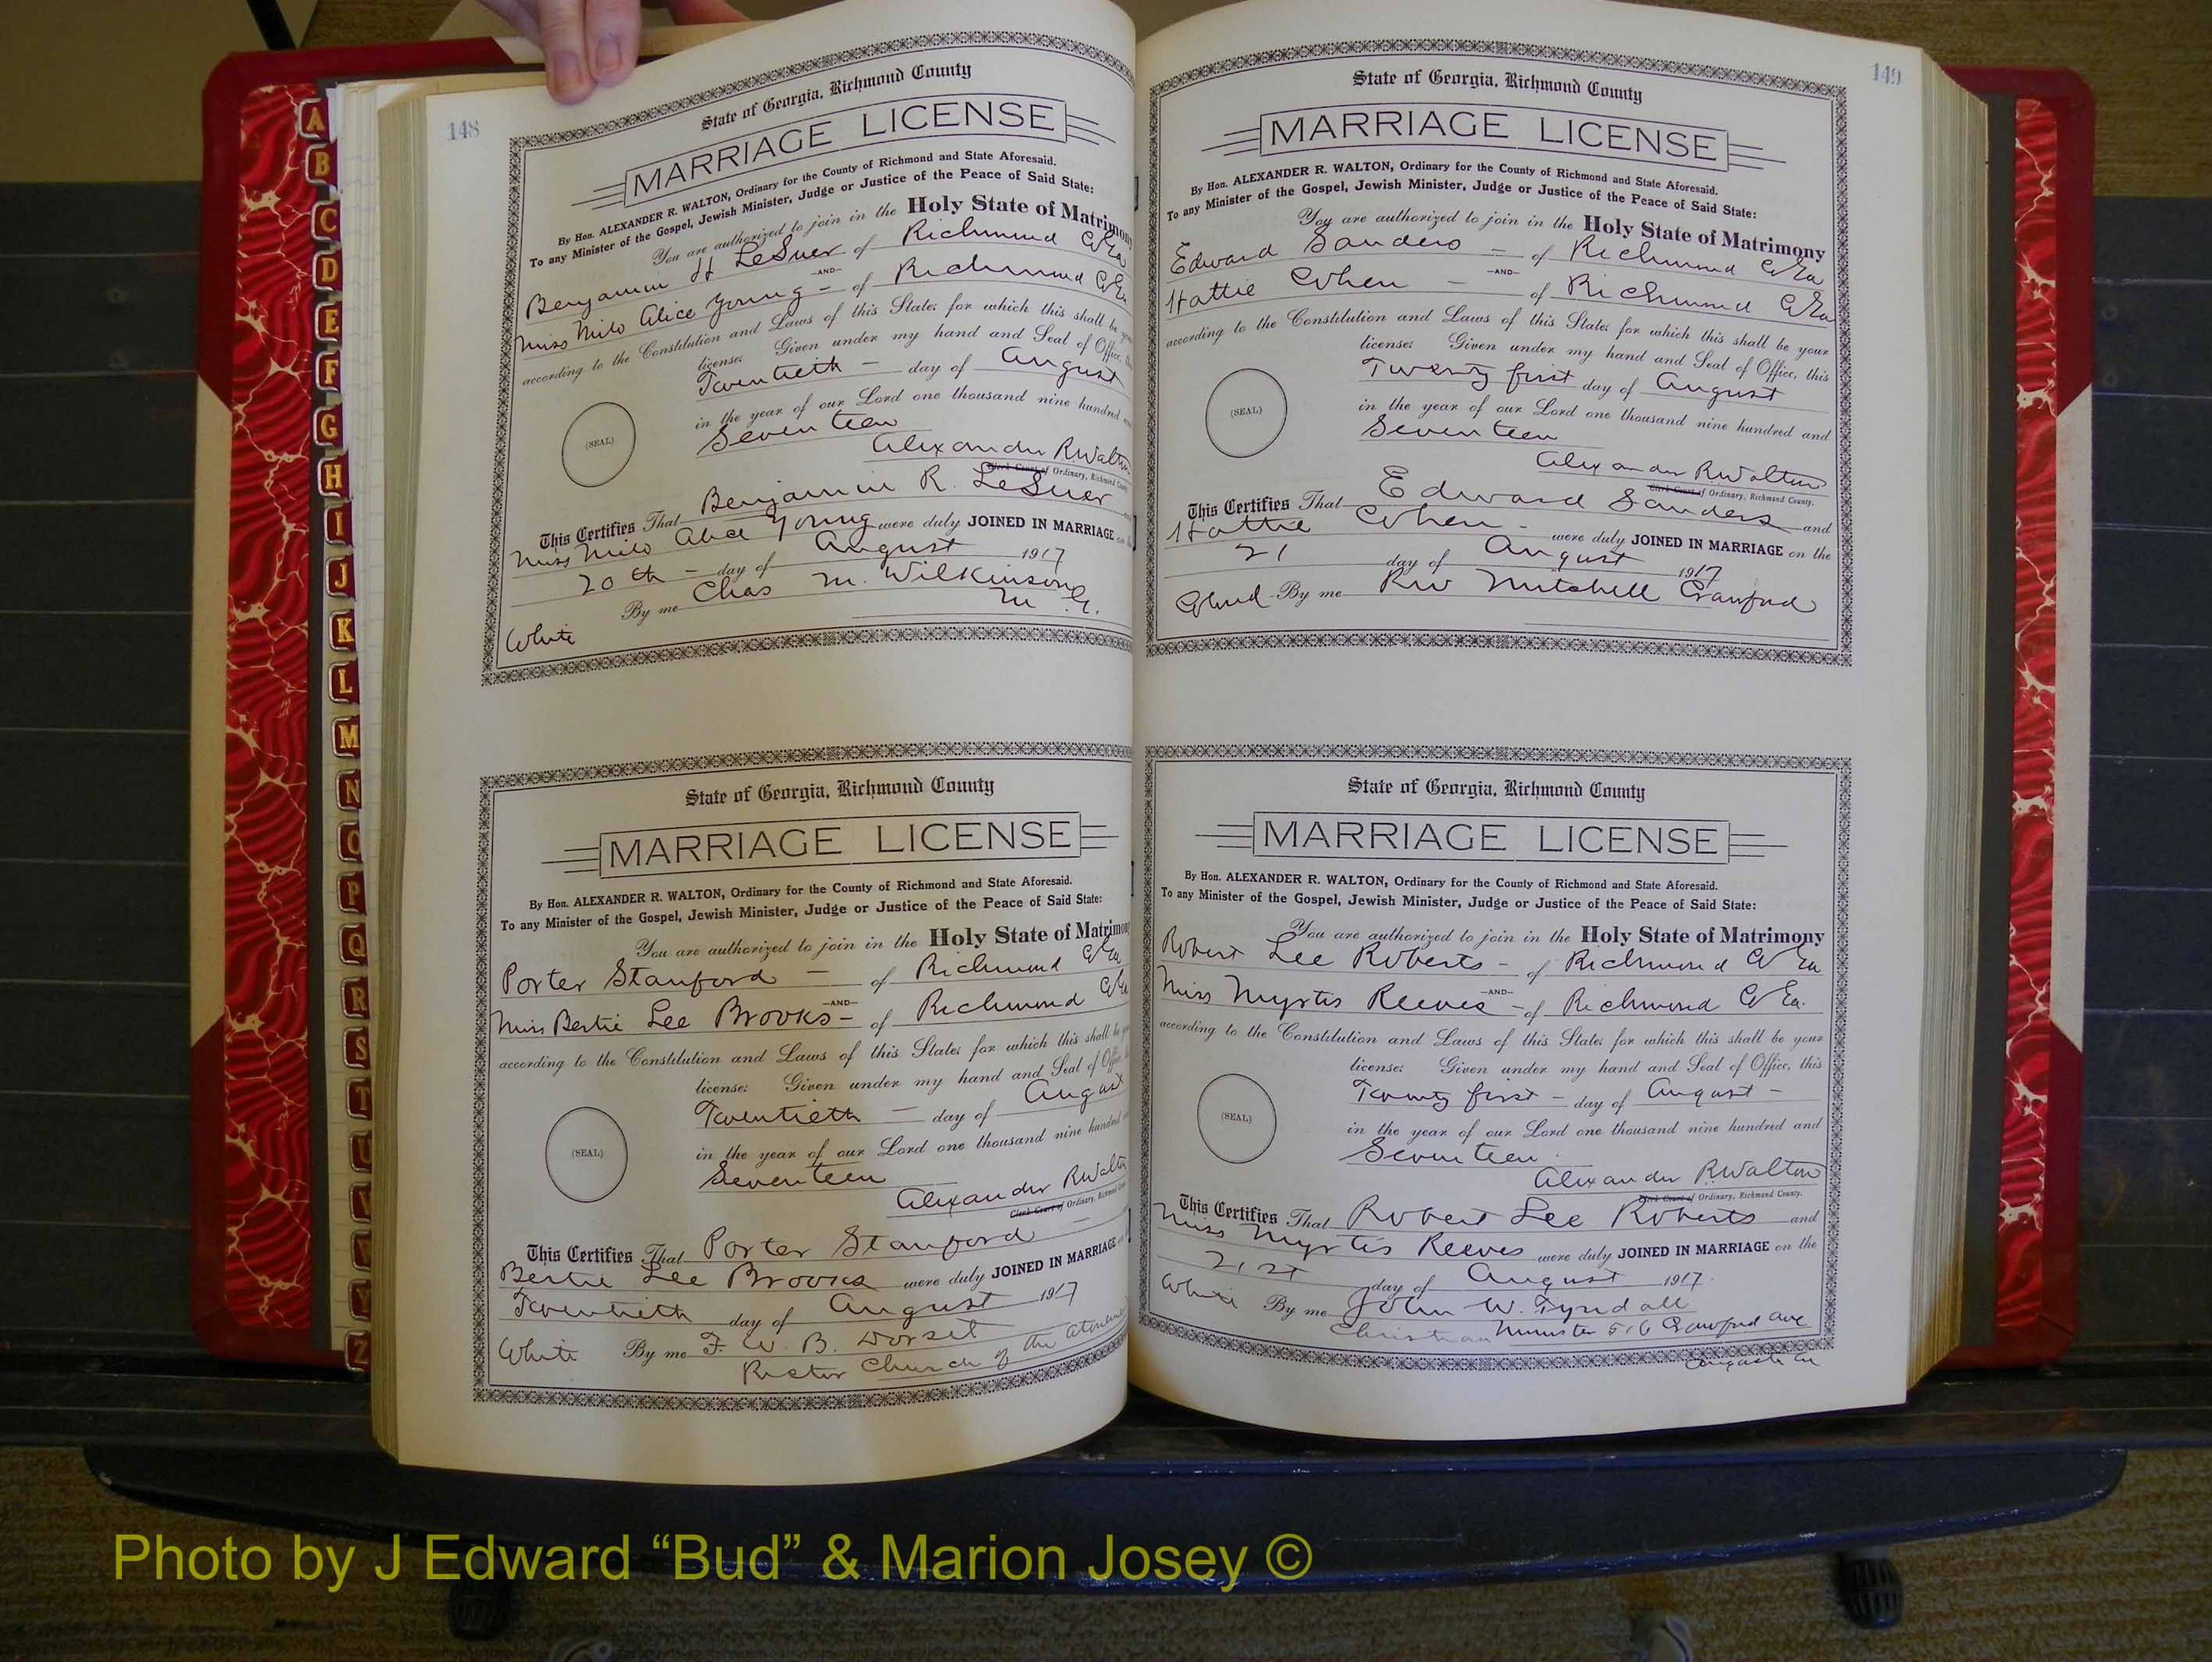 A
B
C
D
E
F
G
H
I
J
K
L
M
N
O
P
Q
R
S
T
U
V
W
Y
Z
148
State of Georgia, Richmond County
MARRIAGE LICENSE
By Hon. ALEXANDER R. WALTON, Ordinary for the County of Richmond and State Aforesaid.
To any Minister of the Gospel, Jewish Minister, Judge or Justice of the Peace of Said State:
You are authorized to join in the Holy State of Matrimony
Benjamin H LeSuer of Richmond Co Ga
—AND—
Miss Milo Alice Young – of Richmond Co Ga
according to the Constitution and Laws of this State; for which this shall be your
license: Given under my hand and Seal of Office, this
Twentieth – day of August
(SEAL)
in the year of our Lord one thousand nine hundred and
Seventeen
Alexander R Walton
Clerk Court of Ordinary, Richmond County.
This Certifies That Benjamin R. LeSuer
Miss Milo Alice Young were duly JOINED IN MARRIAGE on the
20th – day of August 1917
By me Chas M. Wilkinson
M. G.
White
State of Georgia, Richmond County
MARRIAGE LICENSE
By Hon. ALEXANDER R. WALTON, Ordinary for the County of Richmond and State Aforesaid.
To any Minister of the Gospel, Jewish Minister, Judge or Justice of the Peace of Said State:
You are authorized to join in the Holy State of Matrimony
Porter Stanford – of Richmond Co Ga
—AND—
Miss Bertie Lee Brooks – of Richmond Co Ga
according to the Constitution and Laws of this State; for which this shall be your
license: Given under my hand and Seal of Office,
Twentieth – day of August
(SEAL)
in the year of our Lord one thousand nine hundred
Seventeen
Alexander R Walton
Clerk Court of Ordinary, Richmond
This Certifies That Porter Stanford
Bertie Lee Brooks were duly JOINED IN MARRIAGE
Twentieth day of August 1917
White By me F. W. B. Dorset
Rector Church of the Atonement
149
State of Georgia, Richmond County
MARRIAGE LICENSE
By Hon. ALEXANDER R. WALTON, Ordinary for the County of Richmond and State Aforesaid.
To any Minister of the Gospel, Jewish Minister, Judge or Justice of the Peace of Said State:
You are authorized to join in the Holy State of Matrimony
Edward Sanders – of Richmond Co Ga
—AND—
Hattie Cohen – of Richmond Co Ga
according to the Constitution and Laws of this State; for which this shall be your
license: Given under my hand and Seal of Office, this
Twenty first day of August
(SEAL)
in the year of our Lord one thousand nine hundred and
Seventeen
Alexander R Walton
Clerk Court of Ordinary, Richmond County.
This Certifies That Edward Sanders and
Hattie Cohen – were duly JOINED IN MARRIAGE on the
21 day of August 1917
Colored By me Rev Mitchell Crawford
State of Georgia, Richmond County
MARRIAGE LICENSE
By Hon. ALEXANDER R. WALTON, Ordinary for the County of Richmond and State Aforesaid.
To any Minister of the Gospel, Jewish Minister, Judge or Justice of the Peace of Said State:
You are authorized to join in the Holy State of Matrimony
Robert Lee Roberts – of Richmond Co Ga
—AND—
Miss Myrtis Reeves – of Richmond Co Ga.
according to the Constitution and Laws of this State; for which this shall be your
license: Given under my hand and Seal of Office, this
Twenty first – day of August –
(SEAL)
in the year of our Lord one thousand nine hundred and
Seventeen
Alexander R. Walton
Clerk Court of Ordinary, Richmond County.
This Certifies That Robert Lee Roberts and
Miss Myrtis Reeves were duly JOINED IN MARRIAGE on the
21st day of August 1917.
White By me John W. Tyndall
Christian Minister 516 Crawford Ave
Augusta Ga
Photo by J Edward “Bud” & Marion Josey ©